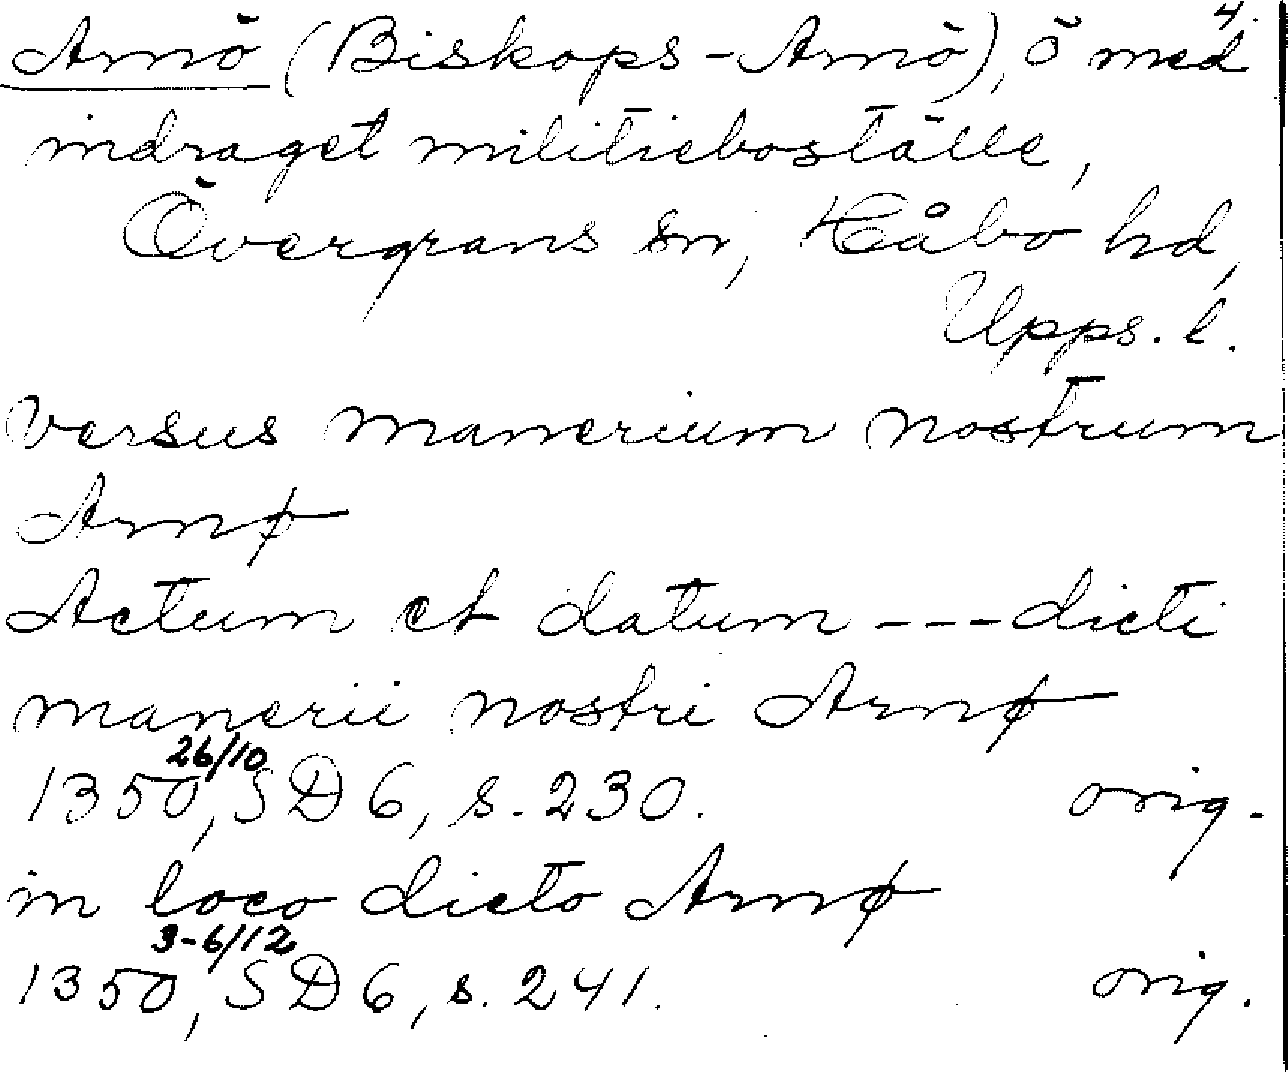 4.
Arnö (Biskops-Arnö), ö med
indraget militieboställe,
Övergrans sn, Håbo hd,
Upps. l.
versus manerium nostrum
Arnø
Actum et datum --- dicti
manerii nostri Arnø
26/10
1350, SD 6, s. 230. orig.
in loco dicto Arnø
3-6/12
1350, SD 6, s. 241. orig.